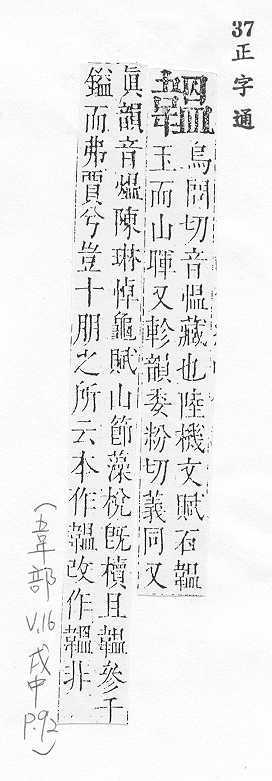 37
正字通
韞
烏問切音慍藏也陸機文賦石韞
玉而山暉又軫韻委粉切義同又
眞韻音熅陳琳悼龜賦山節藻梲旣櫝且韞參千
鎰而弗賈兮豈十朋之所云本作韞改作韞非
(五韋部 V.16, 戌中 P.92)